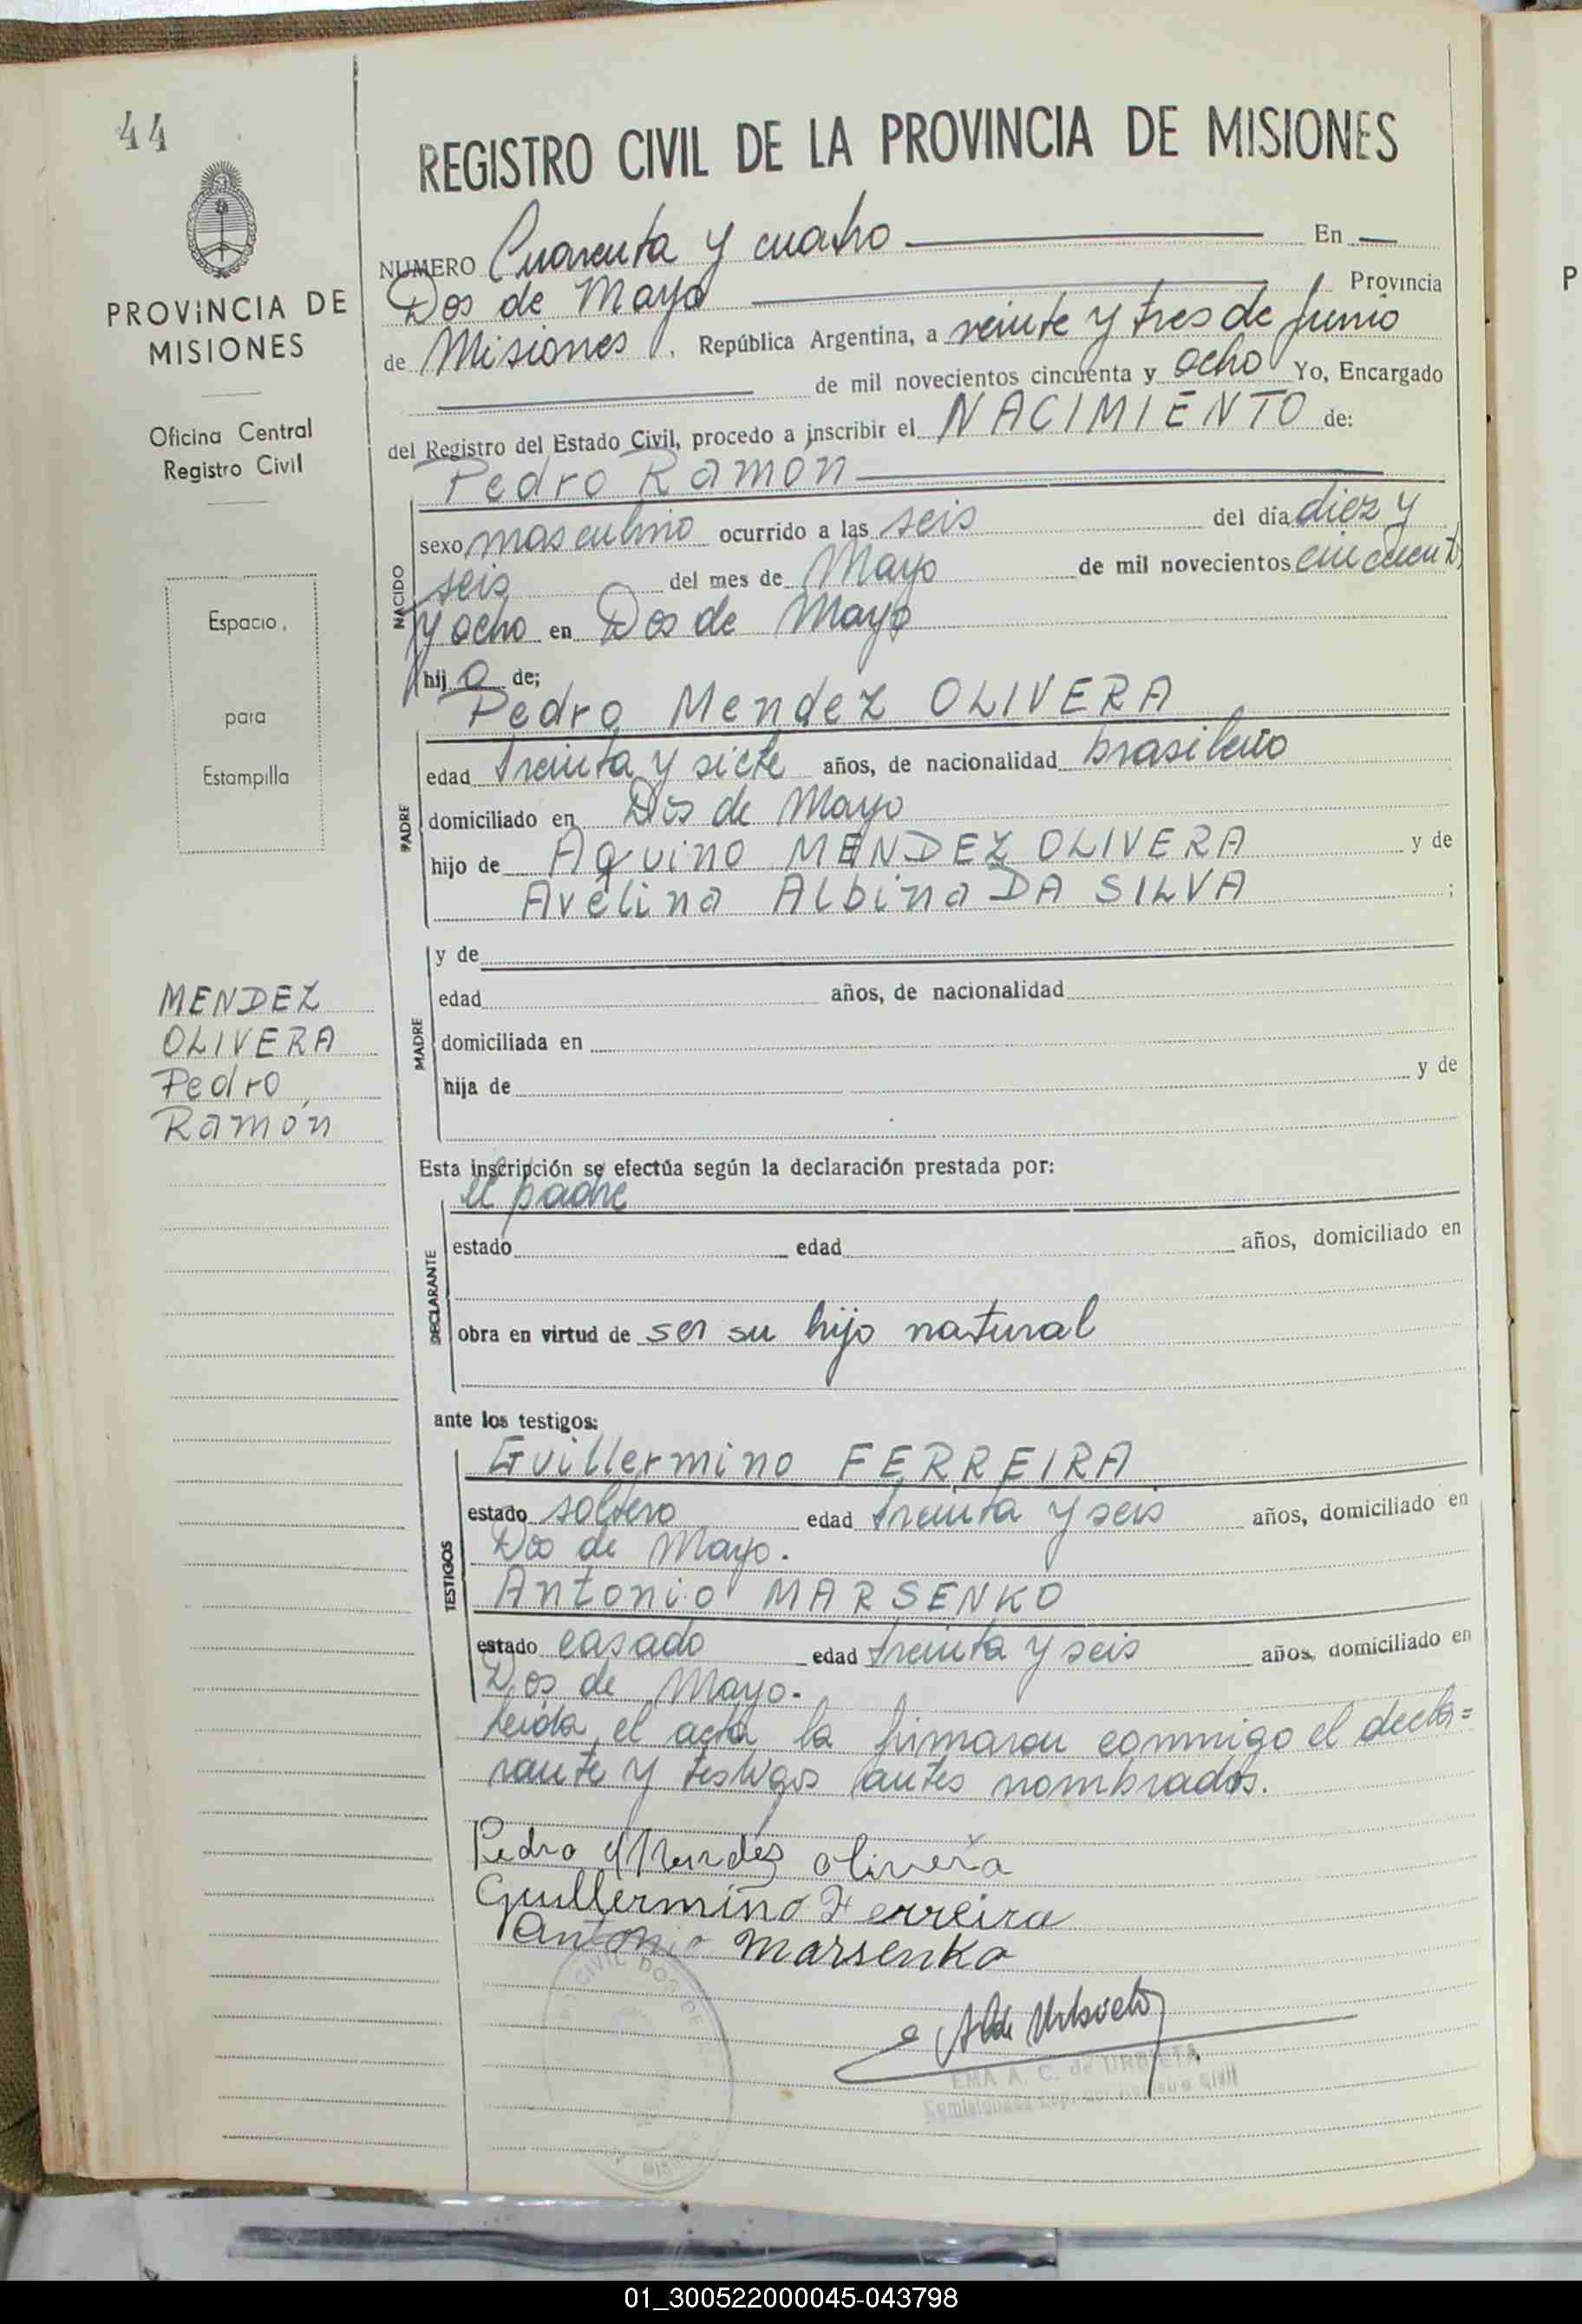 44
PROVINCIA DE
MISIONES
Oficina Central
Registro Civil
Espacio
para
Estampilla
MENDEZ
OLIVERA
Pedro
Ramón
REGISTRO CIVIL DE LA PROVINCIA DE MISIONES
NUMERO Cuarenta y cuatro En
Dos de Mayo Provincia
de Misiones, República Argentina, a veinte y tres de Junio
de mil novecientos cincuenta y ocho Yo, Encargado
del Registro del Estado Civil, procedo a inscribir el NACIMIENTO de:
Pedro Ramón
NACIDO
sexo masculino ocurrido a las seis del día diez y
seis del mes de Mayo de mil novecientos cincuenta
y ocho en Dos de Mayo
hijo de;
Pedro Mendez OLIVERA
PADRE
edad treinta y siete años, de nacionalidad brasileño
domiciliado en Dos de Mayo
hijo de Aquino MENDEZ OLIVERA y de
Avelina Albina DA SILVA ;
MADRE
y de
edad años, de nacionalidad
domiciliada en
hija de y de
Esta inscripción se efectúa según la declaración prestada por:
el padre
DECLARANTE
estado edad años, domiciliado en
obra en virtud de ser su hijo natural
ante los testigos:
Guillermino FERREIRA
TESTIGOS
estado soltero edad treinta y seis años, domiciliado en
Dos de Mayo.
Antonio MARSENKO
estado casado edad treinta y seis años, domiciliado en
Dos de Mayo.
Leída el acta la firmaron conmigo el decla=
rante y testigos antes nombrados.
Pedro Mendes olivera
Guillermino Ferreira
Antonio Marsenko
CIVIL DOS DE
EMA A. C. de URBIETA
P
01_300522000045-043798